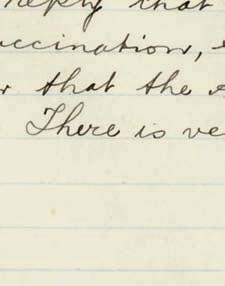 reply that
accination,
that the
There is ve